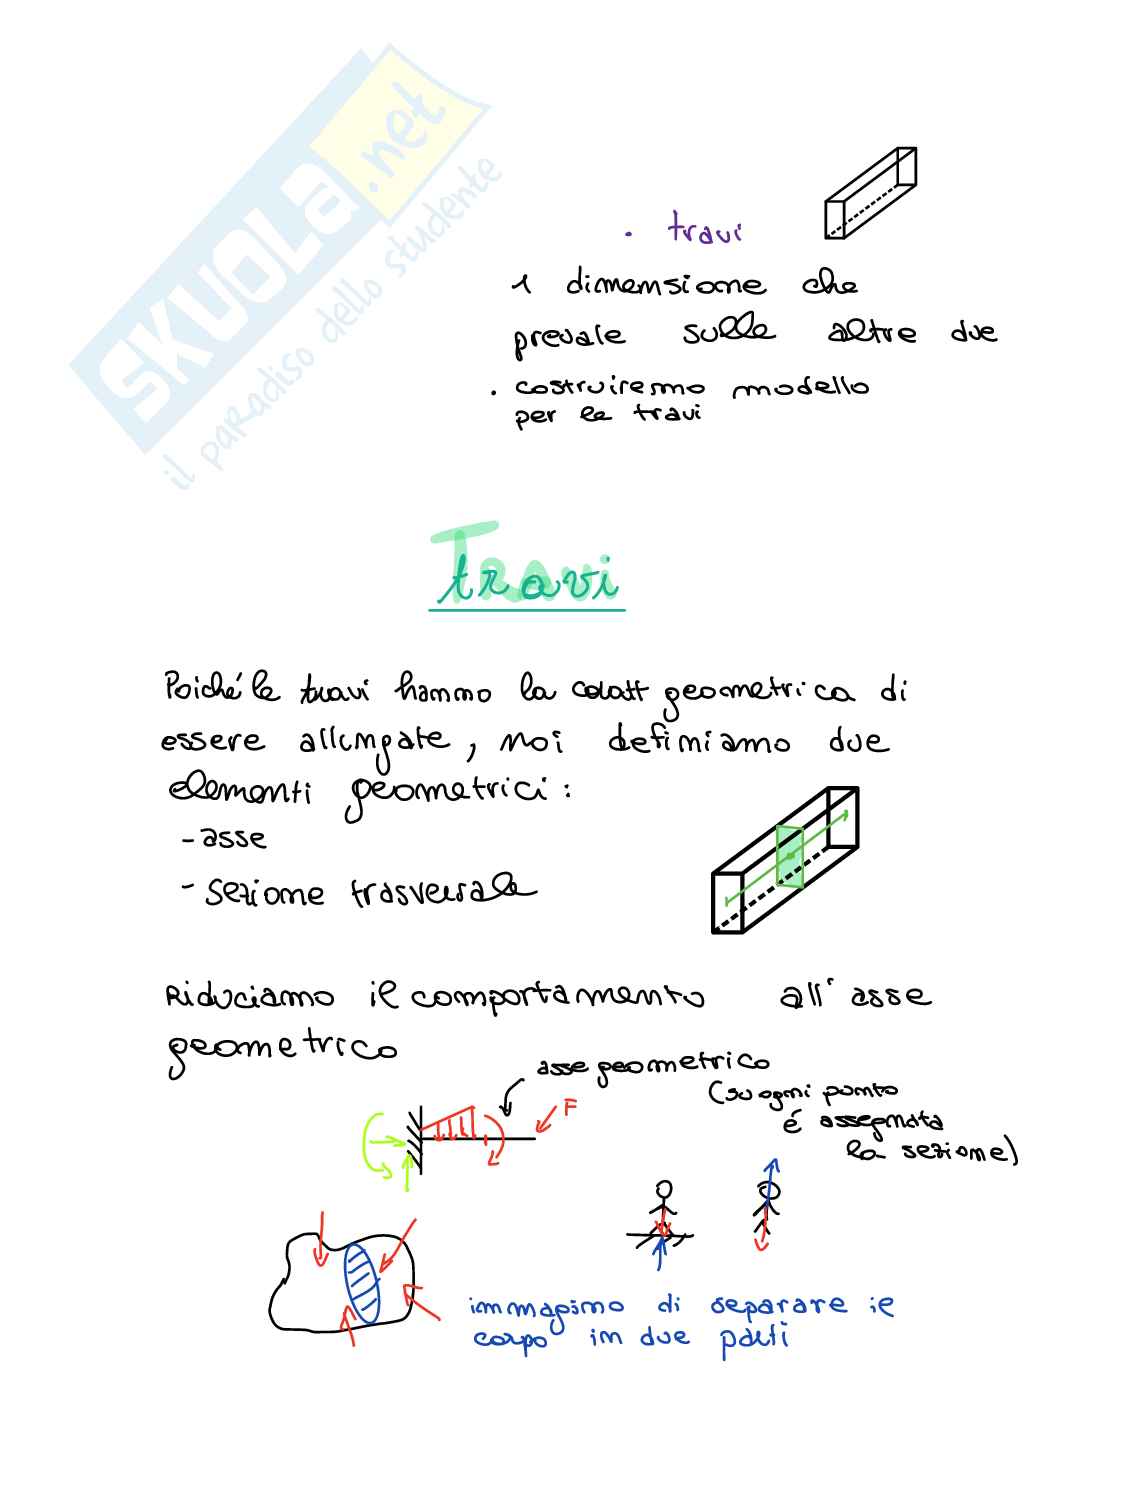 SKUOLA.net
il paradiso dello studente
• travi
1 dimensione che
prevale sulle altre due
• costruiremo modello
per le travi
Travi
travi
Poiché le travi hanno la caratt geometrica di
essere allungate, noi definiamo due
elementi geometrici:
- asse
- sezione trasversale
Riduciamo il comportamento all'asse
geometrico
asse geometrico
(su ogni punto
é assegnata
la sezione)
F
immagino di separare il
corpo in due parti